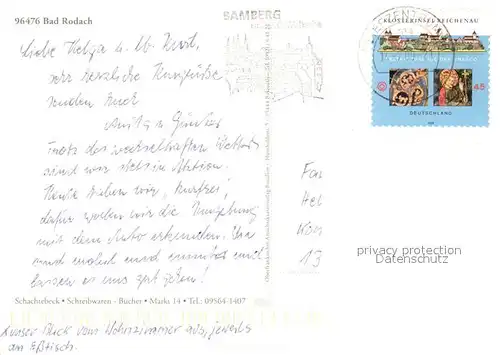 96476 Bad Rodach
BAMBERG
KLOSTERINSEL REICHENAU
45
DEUTSCHLAND
Liebe Helga u. lb. Kurt,
sehr herzliche Kurgrüße
senden Euch
Anita u. Günter
trotz des wechselhaften Wetters
sind wir stets in Aktion.
Heute haben wir „Kurfrei",
dafür wollen wir die Umgebung
mit dem Auto erkunden.
und
lassen es uns gut gehen!
Fam
Hel
13
privacy protection
Datenschutz
Schachtebeck • Schreibwaren - Bücher • Markt 14 • Tel.: 09564-1407
unser Blick vom Wohnzimmer aus, jeweils
am Eßtisch.